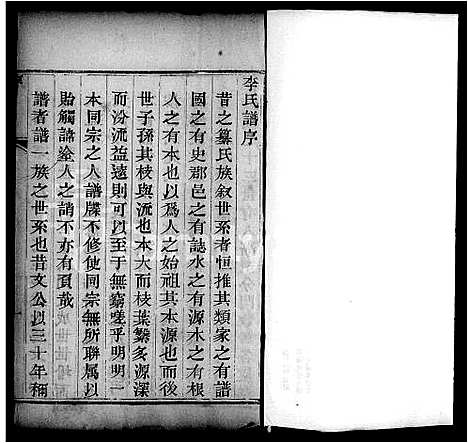 李氏譜序
昔之纂氏族叙世系者恒推其類家之有譜
國之有史郡邑之有誌水之有源木之有根
人之有本也以爲人之始祖其本源也而後
世子孫其枝與流也本大而枝葉繁多源深
而汾流益遠則可以至于無窮嗟乎明明一
本同宗之人譜牒不修使同宗無所聯属以
貽觸諦塗人之誚不亦有頁哉
譜者譜一族之世系也昔文公以三十年稱